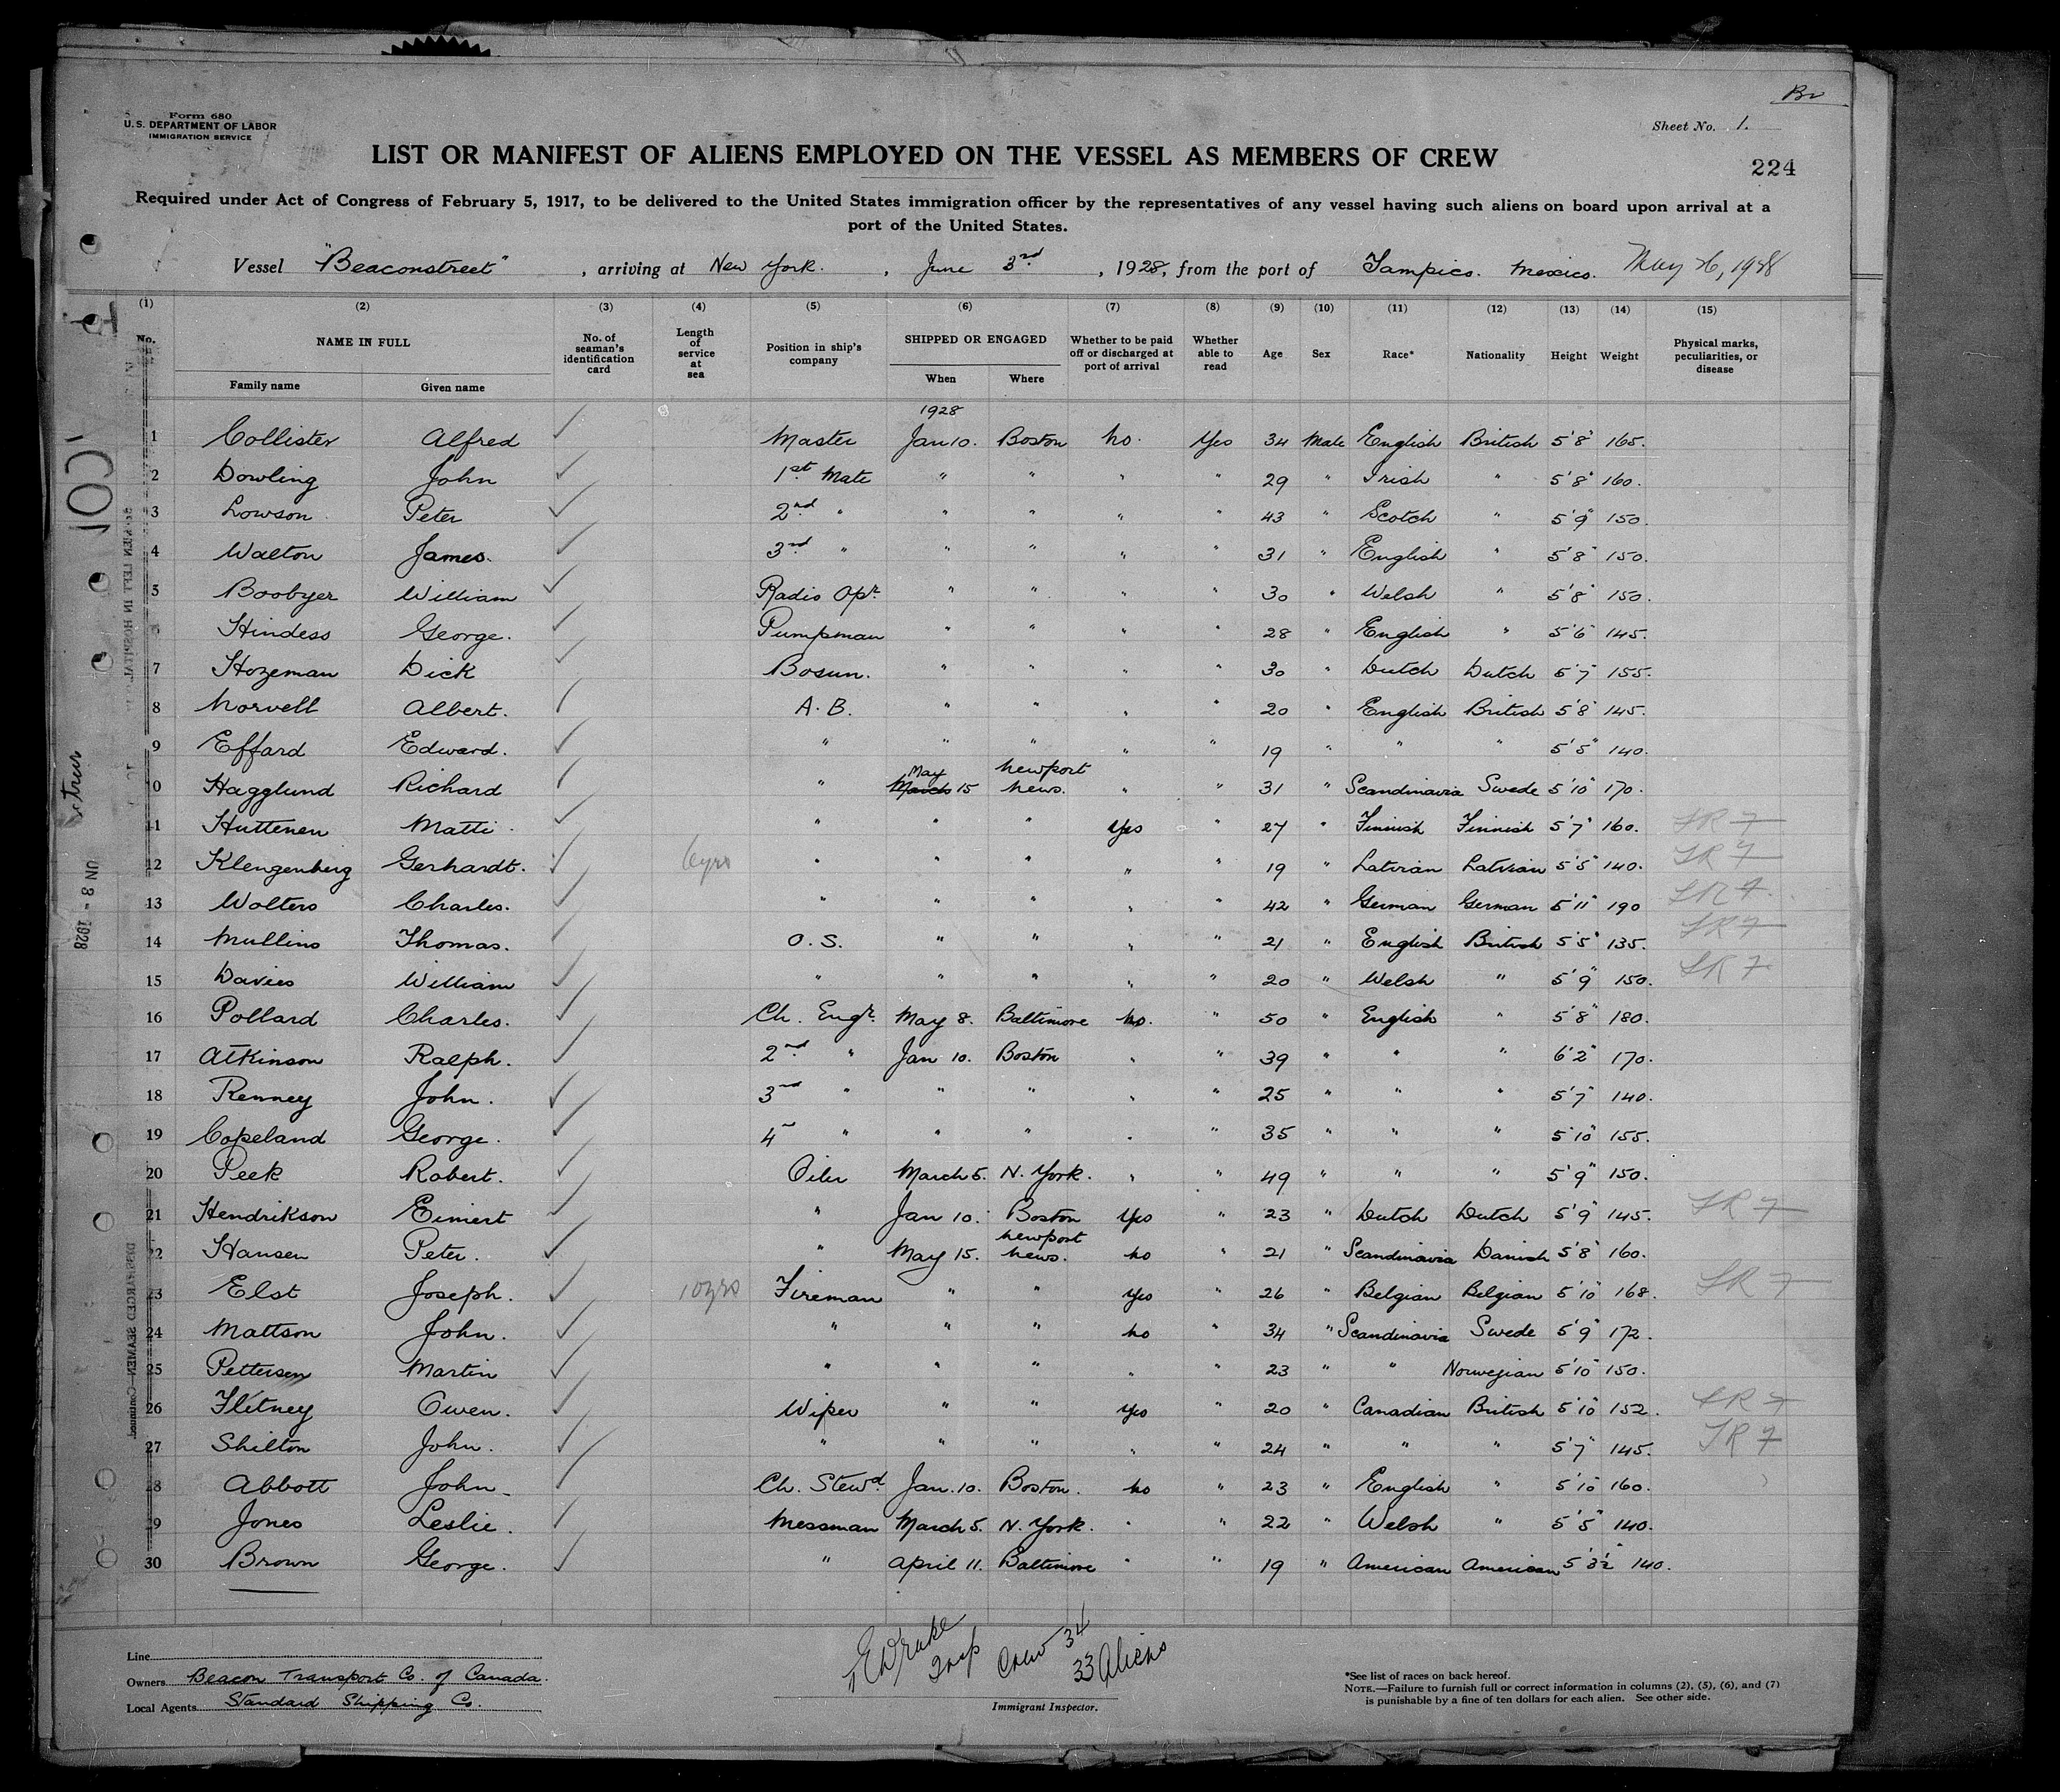 Br
Form 680
U.S. DEPARTMENT OF LABOR
IMMIGRATION SERVICE
Sheet No. 1.
LIST OR MANIFEST OF ALIENS EMPLOYED ON THE VESSEL AS MEMBERS OF CREW
224
Required under Act of Congress of February 5, 1917, to be delivered to the United States immigration officer by the representatives of any vessel having such aliens on board upon arrival at a
port of the United States.
Vessel "Beaconstreet", arriving at New York., June 3rd, 1928, from the port of Tampico. Mexico. May 26, 1928
(1) (2) (3) (4) (5) (6) (7) (8) (9) (10) (11) (12) (13) (14) (15)
No. NAME IN FULL No. of seaman's identification card Length of service at sea Position in ship's company SHIPPED OR ENGAGED Whether to be paid off or discharged at port of arrival Whether able to read Age Sex Race* Nationality Height Weight Physical marks, peculiarities, or disease
Family name Given name When Where
1928
1 Collister Alfred ✓ Master Jan 10. Boston no. Yes 34 Male English British 5'8" 165.
2 Dowling John ✓ 1st Mate " " " " 29 " Irish " 5'8" 160.
3 Lowson Peter ✓ 2nd " " " " " 43 " Scotch " 5'9" 150.
4 Walton James. ✓ 3rd " " " " " 31 " English " 5'8" 150.
5 Boobyer William ✓ Radio Opr. " " " " 30 " Welsh " 5'8" 150.
6 Hindess George. ✓ Pumpman " " " " 28 " English " 5'6" 145.
7 Hozeman Dick ✓ Bosun. " " " " 30 " Dutch Dutch 5'7" 155.
8 Norvell Albert. ✓ A.B. " " " " 20 " English British 5'8" 145.
9 Effard Edward. ✓ " " " " " 19 " " " 5'5" 140.
10 Hagglund Richard ✓ " March May 15 Newport News. " " 31 " Scandinavia Swede 5'10" 170.
11 Huttenen Matti. ✓ " " " Yes " 27 " Finnish Finnish 5'7" 160. SR 7
12 Klengenberg Gerhardt. ✓ 6yrs " " " " " 19 " Latvian Latvian 5'5" 140. SR 7
13 Wolters Charles. ✓ " " " " " 42 " German German 5'11" 190 SR 7
14 Mullins Thomas. ✓ O.S. " " " " 21 " English British 5'5" 135. SR 7
15 Davies William ✓ " " " " " 20 " Welsh " 5'9" 150. SR 7
16 Pollard Charles. ✓ Ch. Engr. May 8. Baltimore no. " 50 " English " 5'8" 180.
17 Atkinson Ralph. ✓ 2nd " Jan 10. Boston " " 39 " " " 6'2" 170.
18 Renney John. ✓ 3rd " " " " " 25 " " " 5'7" 140.
19 Copeland George. ✓ 4 " " " " " 35 " " " 5'10" 155.
20 Peek Robert. ✓ Oiler March 5. N. York. " " 49 " " " 5'9" 150.
21 Hendrikson Eimert ✓ " Jan 10. Boston Yes " 23 " Dutch Dutch 5'9" 145. SR 7
22 Hansen Peter. ✓ " May 15. Newport News. no " 21 " Scandinavia Danish 5'8" 160.
23 Elst Joseph. ✓ 10yrs Fireman " " Yes " 26 " Belgian Belgian 5'10" 168. SR 7
24 Mattson John. ✓ " " " no " 34 " Scandinavia Swede 5'9" 172.
25 Pettersen Martin ✓ " " " " " 23 " " Norwegian 5'10" 150.
26 Flitney Owen. ✓ Wiper " " Yes " 20 " Canadian British 5'10" 152. SR 7
27 Shilton John. ✓ " " " " " 24 " " " 5'7" 145. SR 7
28 Abbott John. ✓ Ch. Stewd. Jan. 10. Boston. no " 23 " English " 5'10" 160.
29 Jones Leslie. ✓ Messman March 5. N. York. " " 22 " Welsh " 5'5" 140.
30 Brown George. ✓ " April 11. Baltimore " " 19 " American American 5'3½" 140.
JUN 8 - 1928
DISCHARGED SEAMEN—Continued
Line
Owners Beacon Transport Co. of Canada.
Local Agents Standard Shipping Co.
Drake Insp Crew 34
33 Aliens
Immigrant Inspector.
*See list of races on back hereof.
NOTE.—Failure to furnish full or correct information in columns (2), (5), (6), and (7)
is punishable by a fine of ten dollars for each alien. See other side.